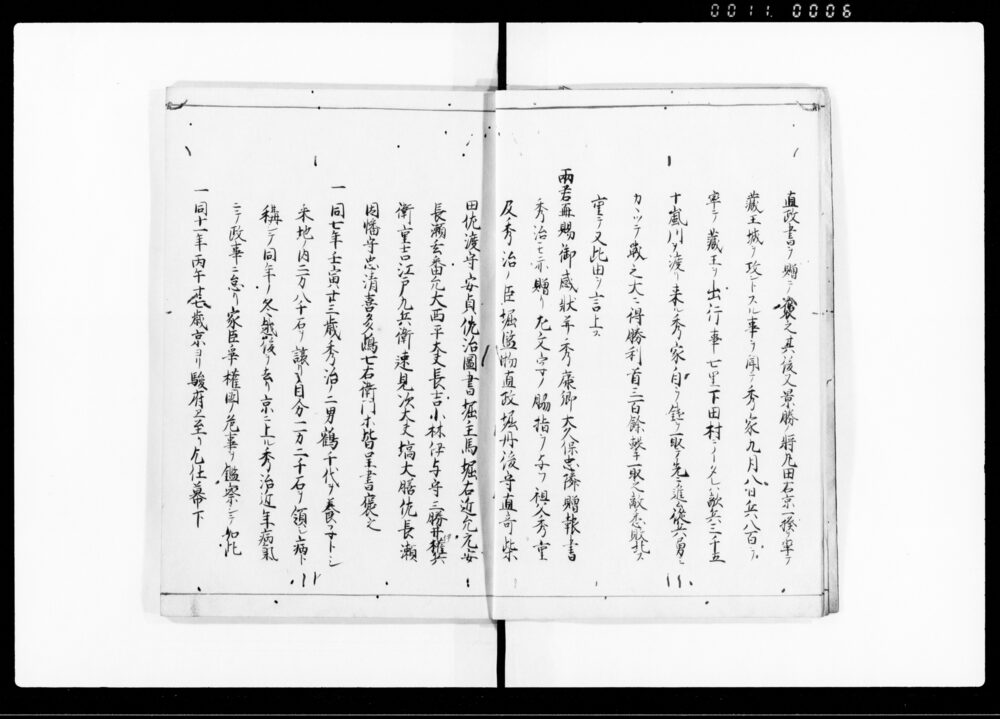 0011 0006
直政書ヲ贈テ褒之其後又景勝ノ将丸田右京一揆ヲ率テ
蔵王城ヲ攻下スル事ヲ聞テ秀家九月八日兵八百ヲ
率テ蔵王ヲ出行事七里下田村ニイタル敵兵三千五
十嵐川ヲ渡リ来ル秀家自ラ鎗ヲ取テ先ニ進ム従兵勇ミ
カヽツテ戦之大ニ得勝利首三百餘撃取之敵悉敗北ス
重テ又此由ヲ言上ス
両君再賜御感状并秀康卿大久保忠隣贈報書
秀治モ亦贈リ左文字ノ脇指ヲ与フ祖父秀重
及秀治ノ臣堀監物直政堀丹後守直寄柴
田佐渡守安貞佐治圖書堀主馬堀右近允元安
長瀬玄番允大西平太夫長吉小林伊与守三勝井権兵
衛重吉江戸九兵衛速見次大夫塙大膳佐長瀬
因幡守忠清喜多嶋七右衛門等皆呈書褒之
一同七年壬寅廿三歳秀治ノ二男鶴千代ヲ養子トシ
釆地ノ内二万八千石ヲ譲リ自分二万二千石ヲ領シ病ト
稱シテ同年ノ冬越後ヲ去リ京ニ上ル秀治近年病氣
ニテ政事ニ怠リ家臣專權國ノ危事ヲ鑑察シテ如此
一同十一年丙午廿七歳京ヨリ駿府ニ至リ乞仕幕下